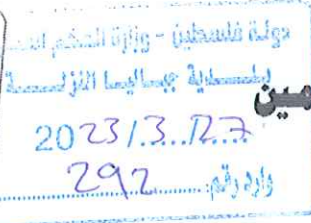 دولة فلسطين - وزارة الحكم
بلدية جباليا النزلة
مين
2023/3/27
وارد رقم: 292